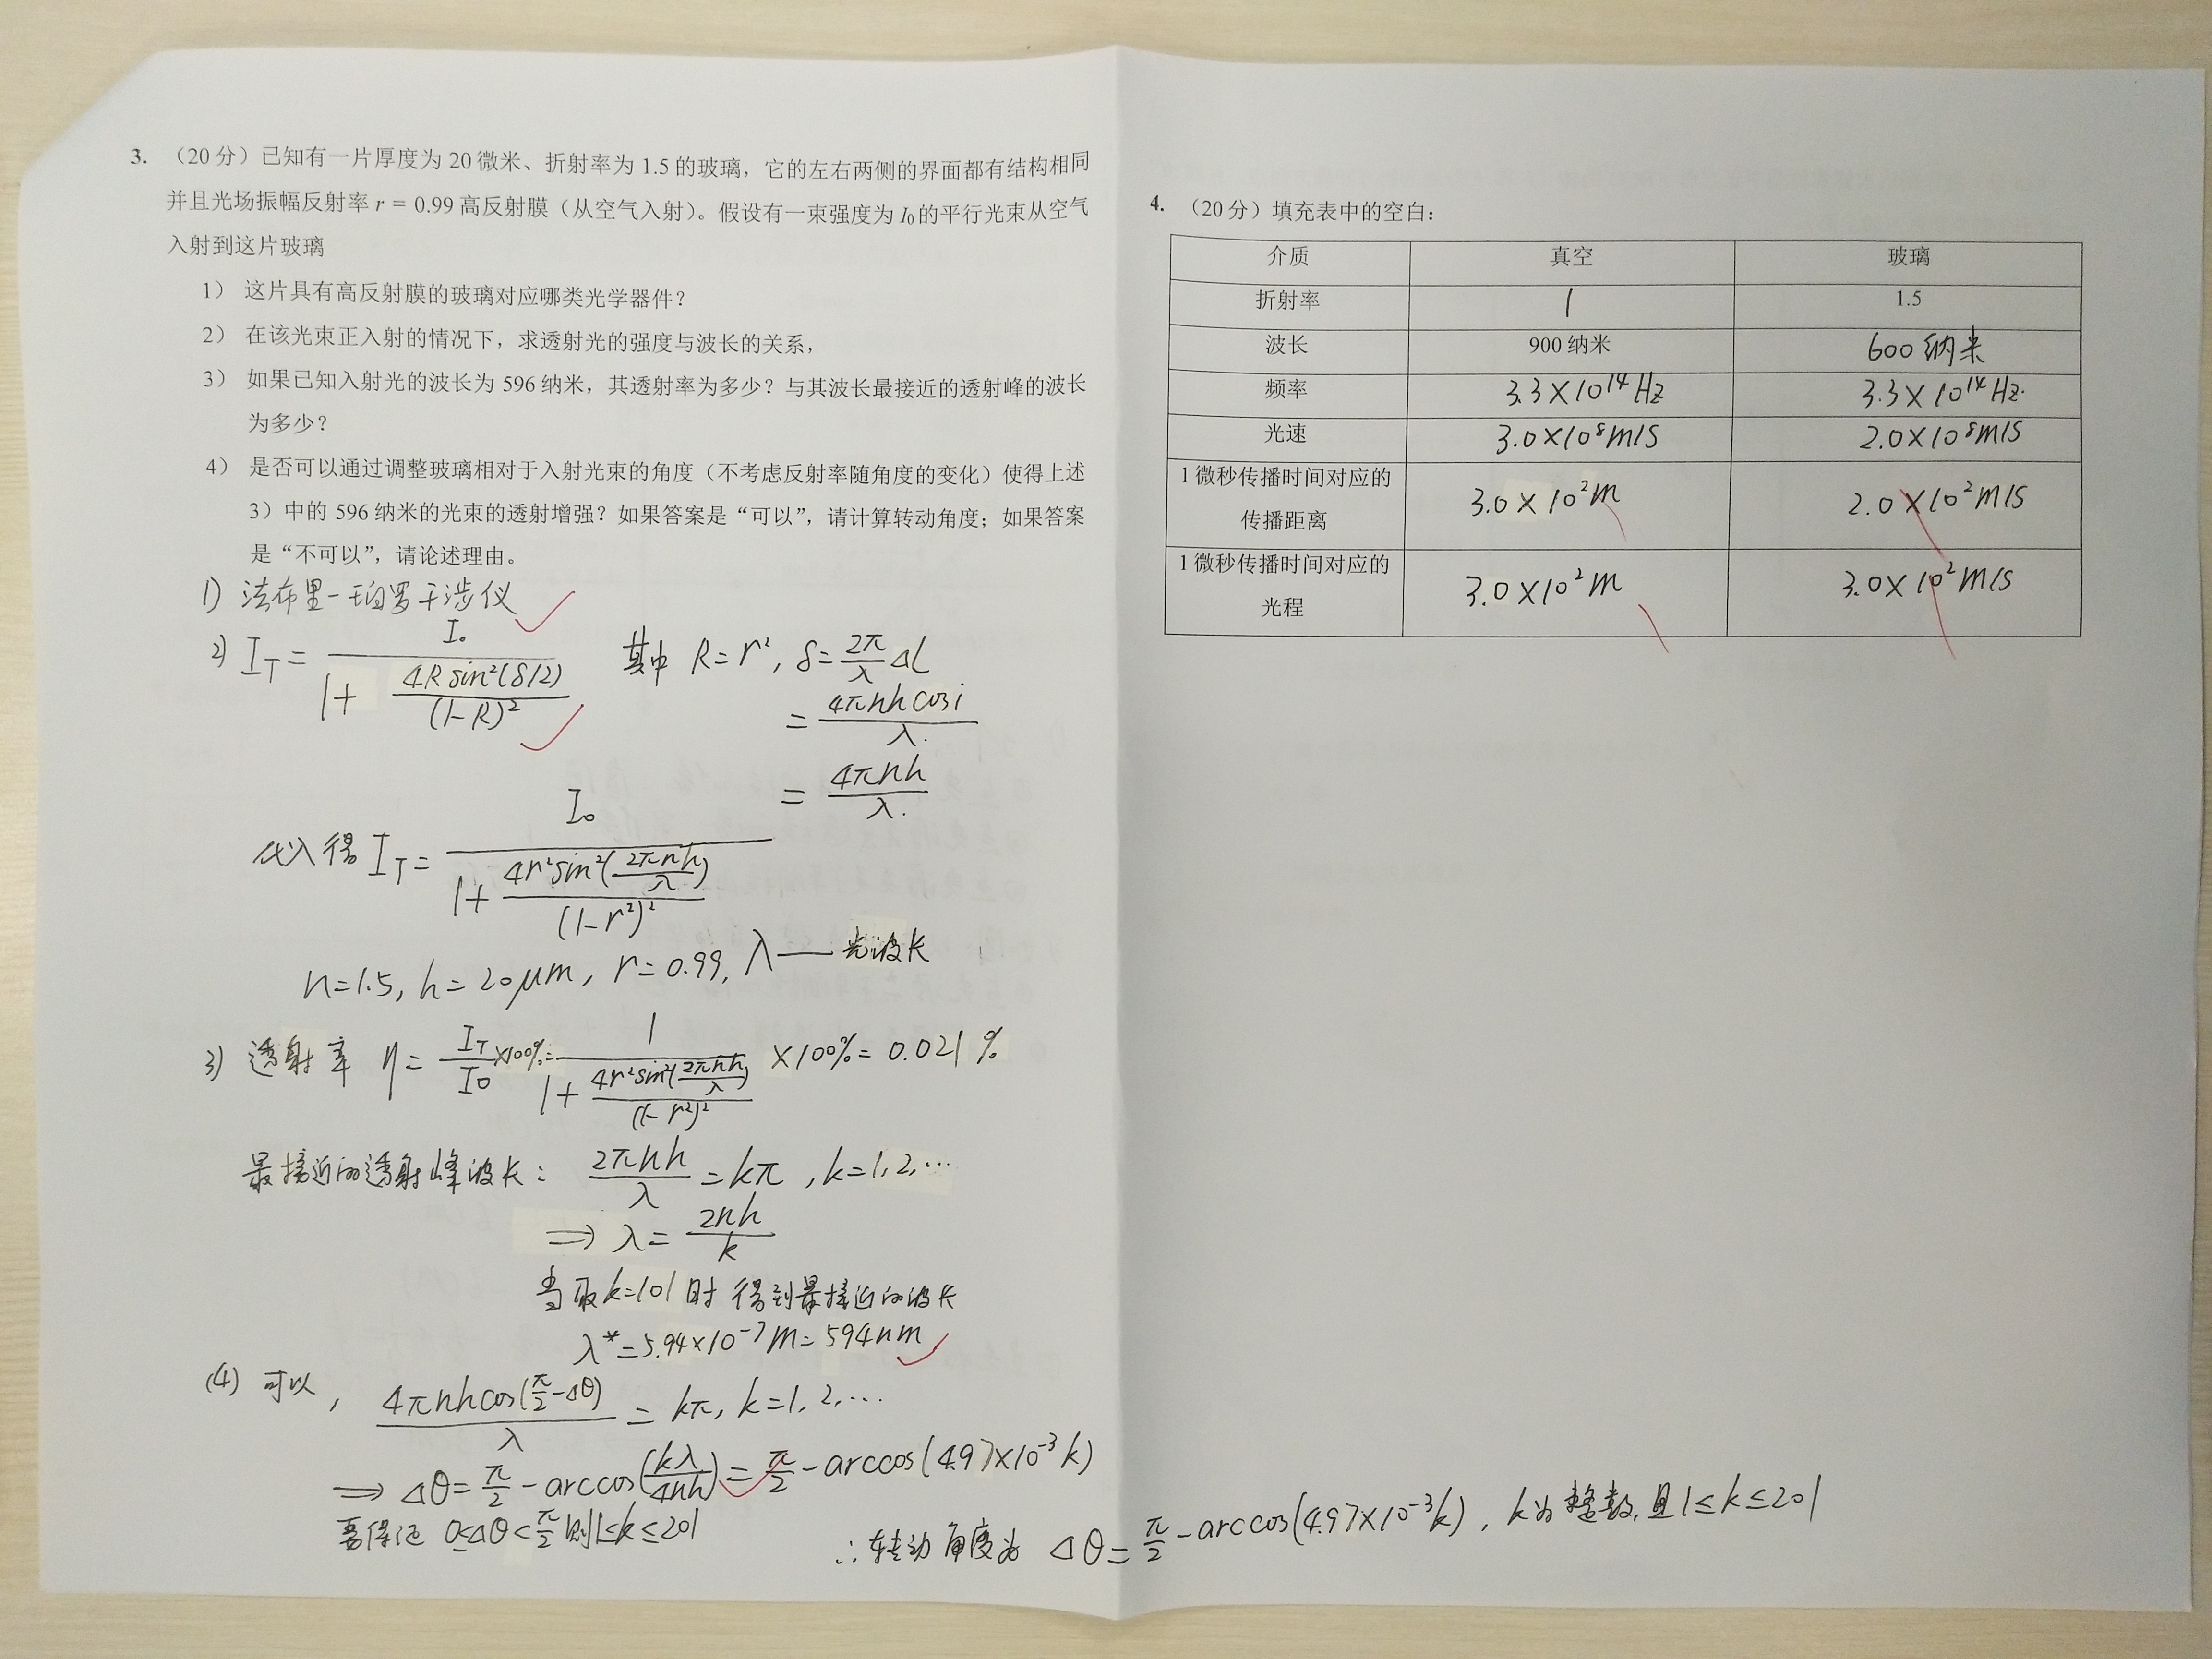 3. （20分）已知有一片厚度为20微米、折射率为1.5的玻璃，它的左右两侧的界面都有结构相同
并且光场振幅反射率 r = 0.99 高反射膜（从空气入射）。假设有一束强度为 I₀ 的平行光束从空气
入射到这片玻璃
1） 这片具有高反射膜的玻璃对应哪类光学器件？
2） 在该光束正入射的情况下，求透射光的强度与波长的关系，
3） 如果已知入射光的波长为 596 纳米，其透射率为多少？与其波长最接近的透射峰的波长
为多少？
4） 是否可以通过调整玻璃相对于入射光束的角度（不考虑反射率随角度的变化）使得上述
3）中的 596 纳米的光束的透射增强？如果答案是“可以”，请计算转动角度；如果答案
是“不可以”，请论述理由。
1) 法布里-珀罗干涉仪
2) I_T = I₀ / (1 + 4R sin²(δ/2) / (1-R)²) 其中 R=r², δ= 2π/λ ΔL
= 4πnh cos i / λ.
= 4πnh / λ.
代入得 I_T = I₀ / (1 + 4r² sin²(2πnh/λ) / (1-r²)²)
n=1.5, h=20μm, r=0.99, λ——光波长
3) 透射率 η = I_T/I₀ ×100% = 1 / (1 + 4r² sin²(2πnh/λ) / (1-r²)²) ×100% = 0.021 %
最接近的透射峰波长： 2πnh/λ = kπ , k=1,2,…
⇒ λ = 2nh/k
当取k=101时 得到最接近的波长
λ* = 5.94×10⁻⁷m = 594nm
(4) 可以, 4πnh cos(π/2-Δθ) / λ = kπ, k=1, 2, …
⇒ Δθ = π/2 - arccos(kλ/4nh) = π/2 - arccos(4.97×10⁻³k)
要保证 0≤Δθ<π/2 则1≤k≤201
∴转动角度为 Δθ = π/2 - arccos(4.97×10⁻³k), k为整数,且1≤k≤201
4. （20分）填充表中的空白：
介质 真空 玻璃
折射率 1 1.5
波长 900 纳米 600 纳米
频率 3.3×10¹⁴Hz 3.3×10¹⁴Hz.
光速 3.0×10⁸m/s 2.0×10⁸m/s
1 微秒传播时间对应的
传播距离 3.0×10²m 2.0×10²m/s
1 微秒传播时间对应的
光程 3.0×10²m 3.0×10²m/s